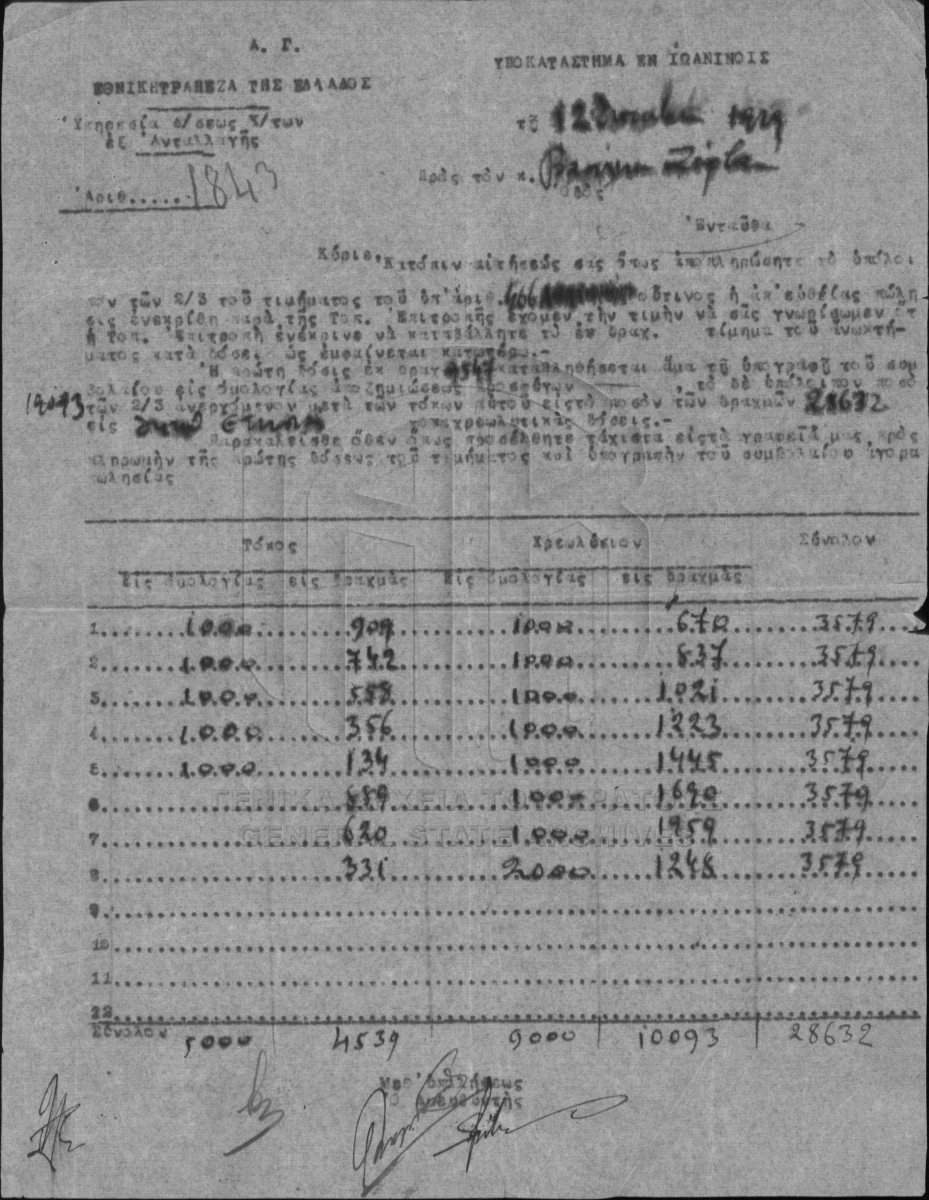 Α. Γ.
ΕΘΝΙΚΗΤΡΑΠΕΖΑ ΤΗΣ ΕΛΛΑΔΟΣ
Ὑπηρεσία δ/σεως κ/των
ἐξ Ἀνταλλαγῆς
Ἀριθ......1843
ΥΠΟΚΑΤΑΣΤΗΜΑ ΕΝ ΙΩΑΝΙΝΟΙΣ
τῇ 12 1929
Πρὸς τὸν κ.
Ὁδὸς
Ἐνταῦθα
Κύριε,
Κατόπιν αἰτήσεώς σας ὅπως ἀποπληρώσητε τὸ ὑπόλοι
πον τῶν 2/3 τοῦ τιμήματος τοῦ ὑπ' ἀριθ. 466 οὗτινος ἡ ἀπ' εὐθείας πώλη
σις ἐνεκρίθη παρὰ τῆς Τοπ. Ἐπιτροπῆς ἔχομεν τὴν τιμὴν νὰ σᾶς γνωρίσωμεν ὅτ
ἡ Τοπ. Ἐπιτροπὴ ἐνέκρινε νὰ καταβάλλητε τὸ ἐκ δραχ. τίμημα τοῦ ἀνωκτή-
ματος κατὰ δόσεις ὡς ἐμφαίνεται κατωτέρω.-
Ἡ πρώτη δόσις ἐκ δραχ. 9547 καταβληθήσεται ἅμα τῇ ὑπογραφῇ τοῦ συμ
βολαίου εἰς ὁμολογίας ἀποζημιώσεως , τὸ δὲ ὑπόλοιπον ποσὸ
19093 τῶν 2/3 ἀνερχόμενον μετὰ τῶν τόκων αὐτοῦ εἰς τὸ ποσὸν τῶν δραχμῶν 28632
εἰς ὀκτὼ ἐτησίας τοκεχρεωλυτικὰς δόσεις.-
Παρακαλεῖσθε ὅθεν ὅπως προσέλθητε τάχιστα εἰς τὰ γραφεῖά μας πρὸς
πληρωμὴν τῆς πρώτης δόσεως τοῦ τιμήματος καὶ ὑπογραφὴν τοῦ συμβολαίου ἀγορα
πωλησίας
Τόκος Χρεωλύσιον Σύνολον
Εἰς ὁμολογίας εἰς δραχμὰς Εἰς ὁμολογίας εἰς δραχμὰς
1 1000 909 1000 670 3579
2 1.000 742 1000 837 3579
3 1.000 558 1000 1021 3579
4 1.000 356 1000 1223 3579
5 1.000 134 1000 1445 3579
6 889 1000 1690 3579
7 620 1.000 1959 3579
8 331 2000 1248 3579
9
10
11
12
Σύνολον 5000 4539 9000 10093 28632
ΓΕΝΙΚΑ ΑΡΧΕΙΑ ΤΟΥ ΚΡΑΤΟΥΣ
GENERAL STATE ARCHIVES
Μεθ' ὑπολήψεως
Ὁ Διευθυντὴς